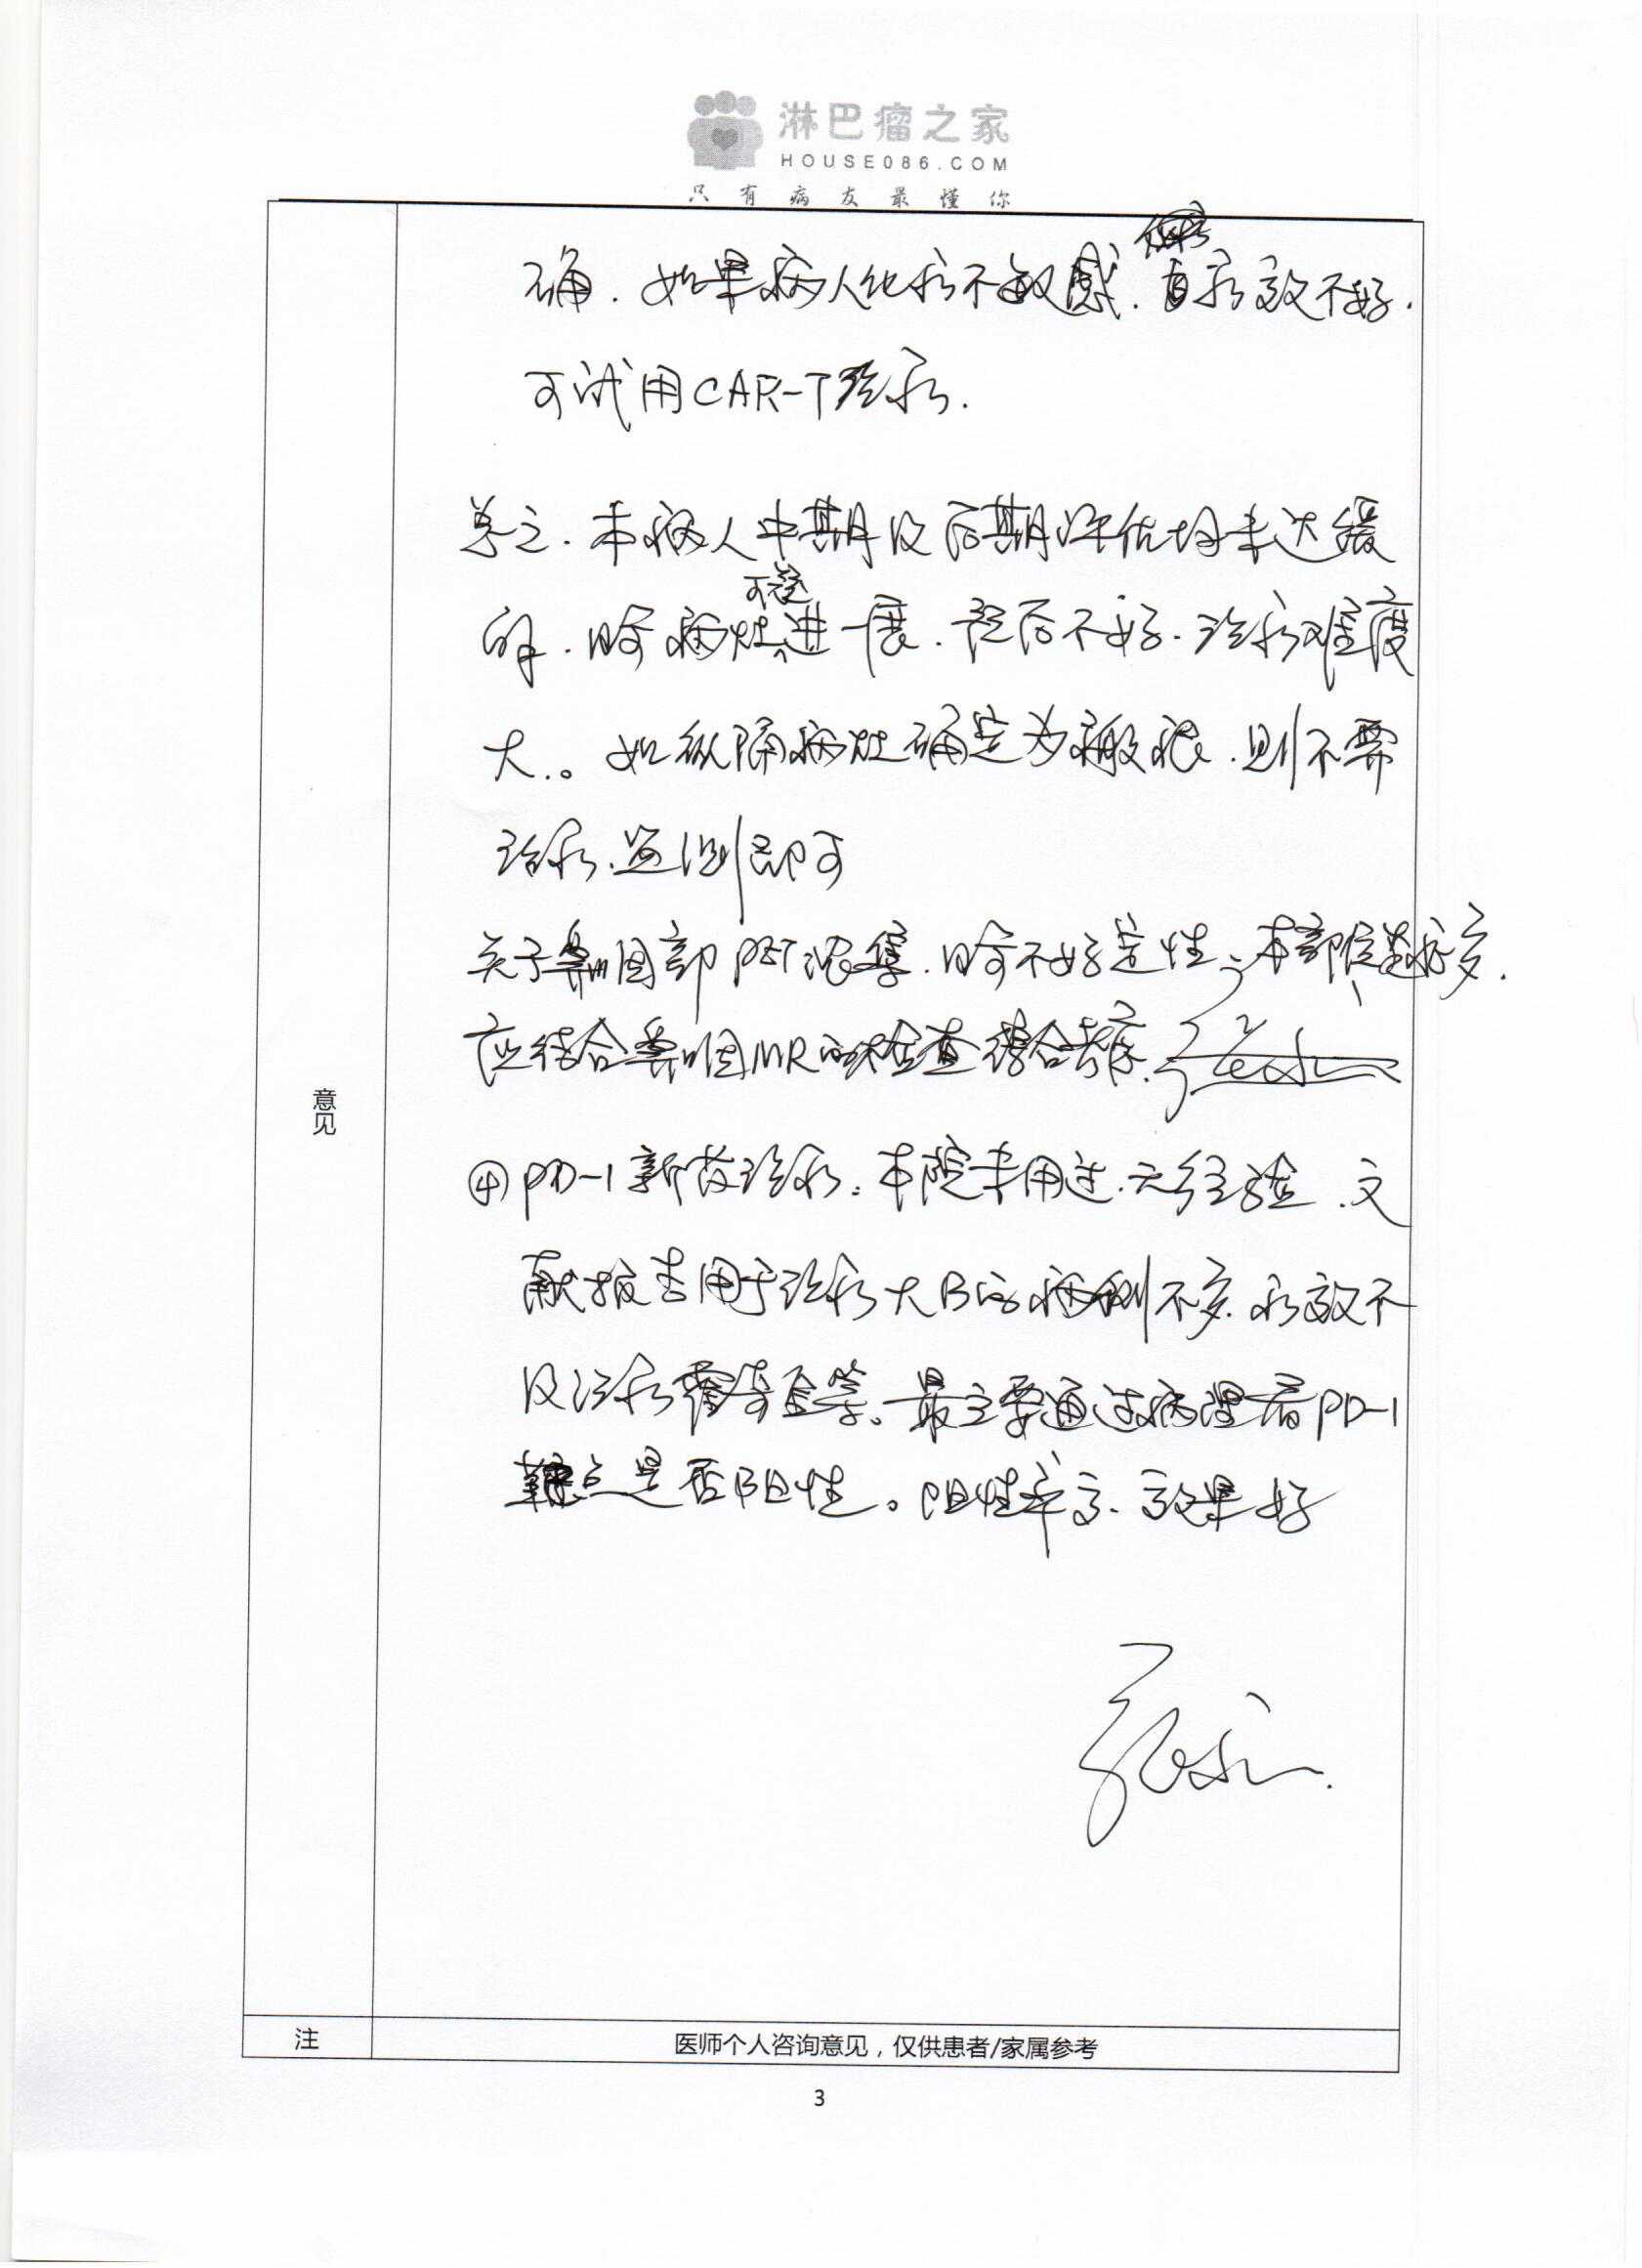 淋巴瘤之家
HOUSE086.COM
只有病友最懂你
确.如果病人化疗不敏感.自疗效不好.
可试用CAR-T治疗.
总之.本病人中期及后期评估均未达缓
解.病灶可疑进展.预后不好.治疗难度
大.。如纵隔病灶确定为瘢痕.则不需
治疗.监测即可
关于鼻咽部PET浓集.不好定性,本部位
应结合鼻咽MR的检查综合考虑.
④PD-1新药治疗:本院未用过.无经验.文
献报告用于治疗大B的病例不多.疗效不
及治疗霍奇金等。最主要通过病理看PD-1
是否阳性。阳性率高、效果好
意见
注
医师个人咨询意见，仅供患者/家属参考
3